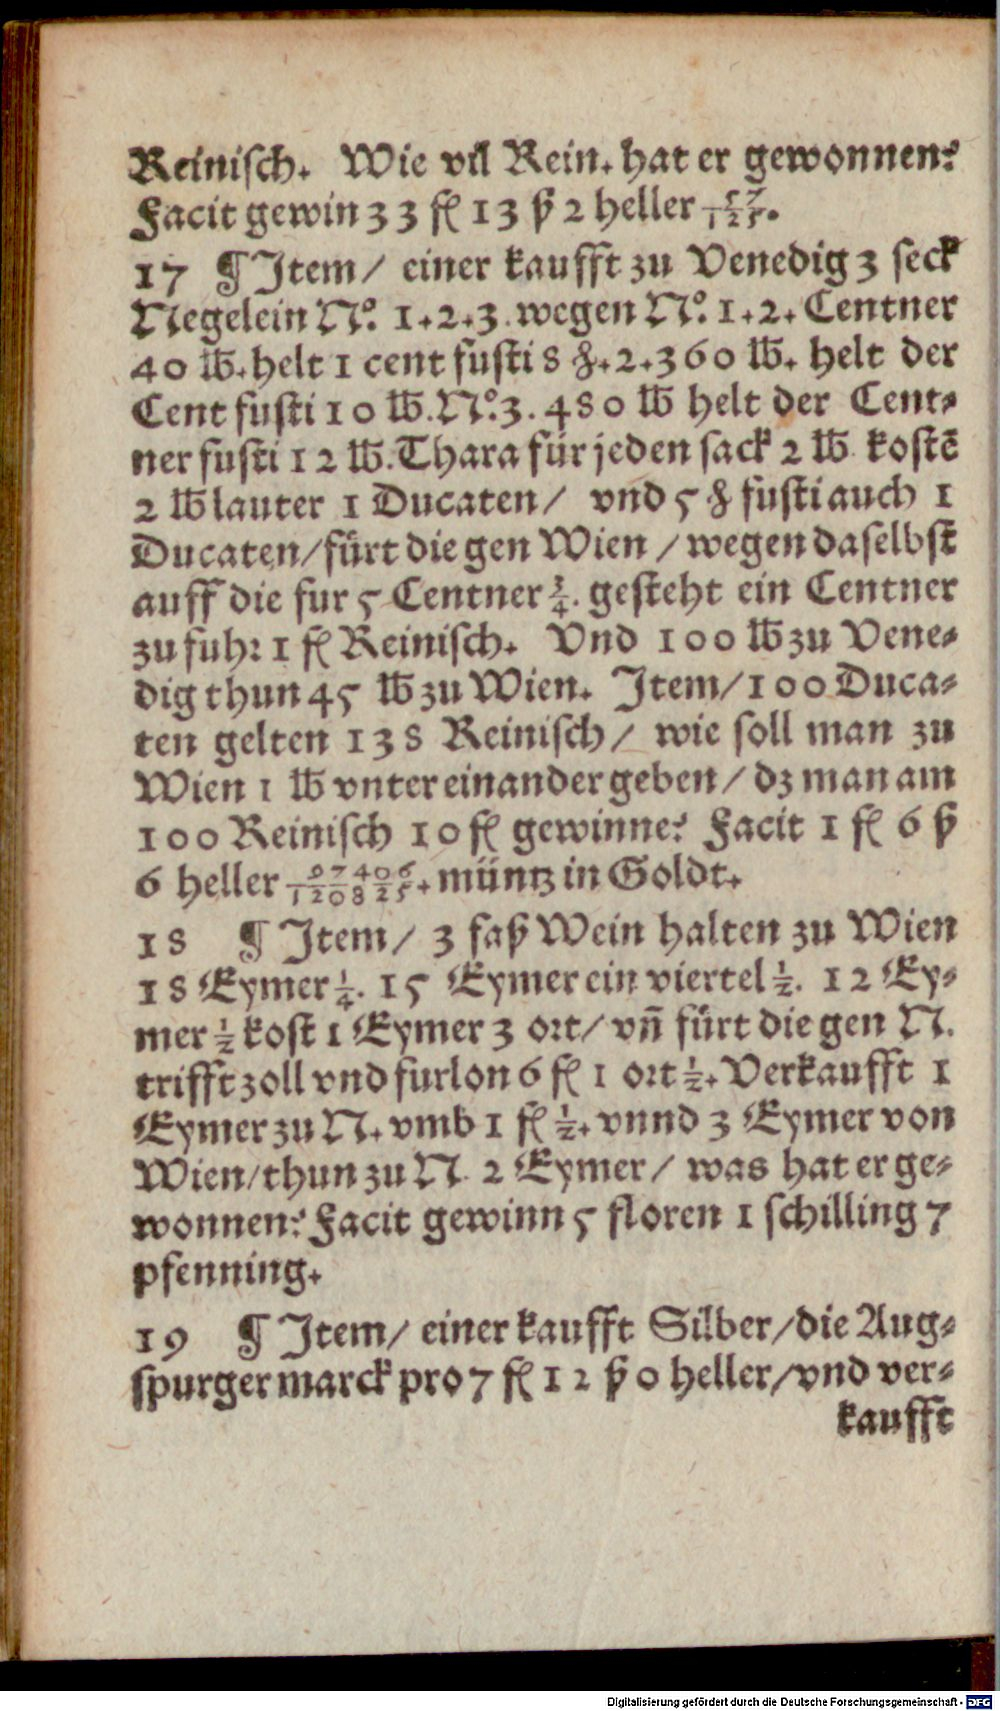 Reinisch. Wie vil Rein. hat er gewonnen?
Facit gewin 33 fl 13 ß 2 heller 57/125.
17 ¶ Item/ einer kaufft zu Venedig 3 seck
Negelein No. 1.2.3. wegen No. 1.2. Centner
40 ℔. helt 1 cent fusti 8 ℔. 2. 360 ℔. helt der
Cent fusti 10 ℔. No. 3. 480 ℔ helt der Cent-
ner fusti 12 ℔. Thara für jeden sack 2 ℔ kostē
2 ℔ lauter 1 Ducaten/ vnd 5 ℔ fusti auch 1
Ducaten/ fürt die gen Wien/ wegen daselbst
auff die fur 5 Centner 3/4. gesteht ein Centner
zu fuhr 1 fl Reinisch. Vnd 100 ℔ zu Vene-
dig thun 45 ℔ zu Wien. Item/ 100 Duca-
ten gelten 138 Reinisch/ wie soll man zu
Wien 1 ℔ vnter einander geben/ dz man am
100 Reinisch 10 fl gewinne? Facit 1 fl 6 ß
6 heller müntz in Goldt.
18 ¶ Item/ 3 faß Wein halten zu Wien
18 Eymer 1/4. 15 Eymer ein viertel 1/2. 12 Ey-
mer 1/2 kost 1 Eymer 3 ort/ vn̄ fürt die gen N.
trifft zoll vnd furlon 6 fl 1 ort 1/2. Verkaufft 1
Eymer zu N. vmb 1 fl 1/2. vnnd 3 Eymer von
Wien/ thun zu N. 2 Eymer/ was hat er ge-
wonnen? Facit gewinn 5 floren 1 schilling 7
pfenning.
19 ¶ Item/ einer kaufft Silber/ die Aug-
spurger marck pro 7 fl 12 ß 0 heller/ vnd ver-
kaufft
Digitalisierung gefördert durch die Deutsche Forschungsgemeinschaft - DFG